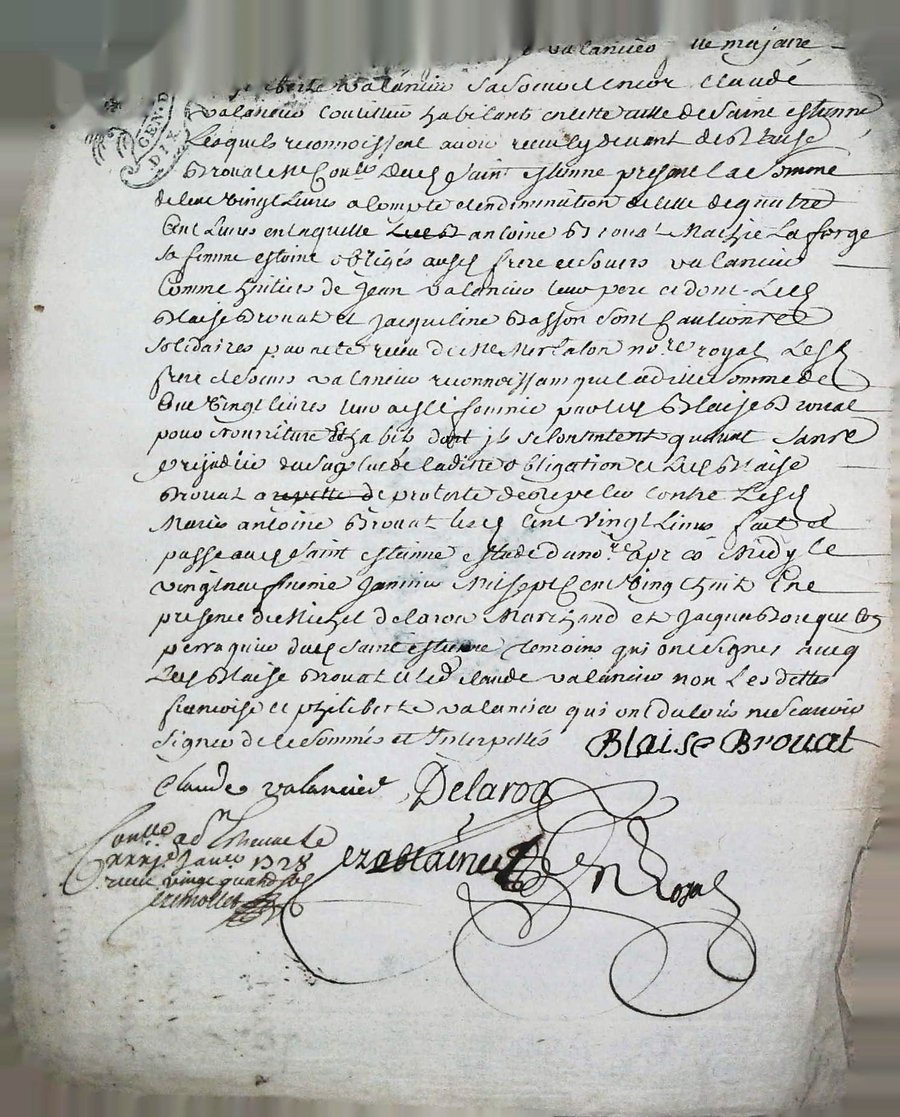 valancier et majare
Philiberte valancier sa soeur et encor claude
valancier coutellier habitants en cette ville de saint estienne
Lesquels reconnoissent avoir receu cy devant de Blaise
Brouat Me Coutel. dud. saint estienne present la somme
de cent vingt Livres a compte et en diminution de celle de quatre
Cent Livres en laquelle antoine Brouat Marie La forge
sa femme estoint obligés ausd. frere et soeurs valancier
Comme heritiers de Jean valancier leur pere et dont Lesd.
Blaise Brouat et Jacqueline Basson sont Cautions et
solidaires par acte receu de Me Merlaton nore royal Lesd.
frere et soeurs valancier reconnoissant que ladite somme de
Cent vingt livres leur a esté fournie par led. Blaise Brouat
pour nourriture et habits dont ils se contentent quittent sans
prejudice du surplus de ladite obligation et Led. Blaise
Brouat a protesté de se repeter contre Lesd.
Mariés antoine Brouat lesd. cent vingt Livres fait et
passé aud. saint estienne estude du nore apres Midy le
vingt neufvieme Janvier Mil sept Cent vingt huit En
presence de Michel delaroa Marchand et Jacques
perraquier dud. saint estienne temoins qui ont signés avec
Led. Blaise Brouat et led. claude valancier non Lesdittes
francoise et philiberte valancier qui ont declaré ne scavoir
signer de ce sommés et Interpellés Blaise Brouat
Claude valancier Delaroa
Conlle a St Etienne le
Janv. 1728
receu vingt quatre sols
royal